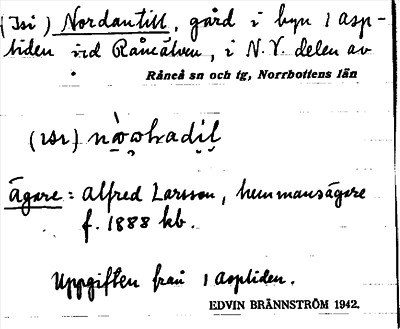 (Isi) Nordantill, gård i byn 1 Asp-
tiden vid Råneälven, i N.V. delen av
Råneå sn och tg, Norrbottens län
(ısı)
Ägare: Alfred Larsson, hemmansägare
f. 1888 hb.
Uppgiften från 1 Asptiden.
EDVIN BRÄNNSTRÖM 1942.